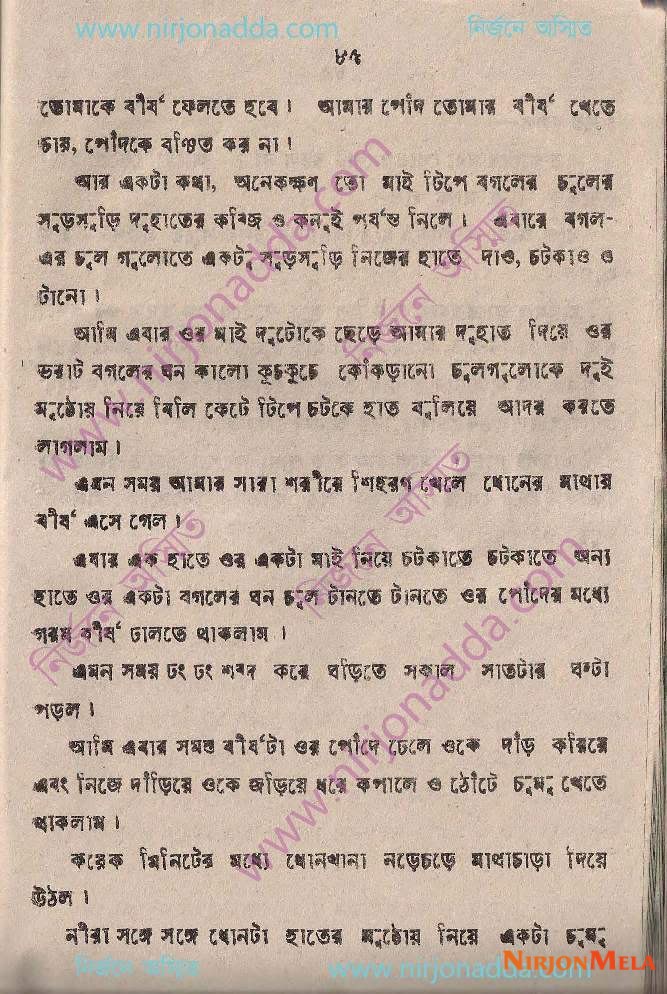 www.nirjonadda.com নির্জনে অস্মিত
৮৭
তোমাকে বীর্য ফেলতে হবে। আমার পোঁদ তোমার বীর্য খেতে
চায়, পোঁদকে বঞ্চিত কর না!
আর একটা কথা, অনেকক্ষণ তো মাই টিপে বগলের চুলের
সুড়সুড়ি দুহাতের কব্জি ও কনুই পর্যন্ত নিলে। এবারে বগল-
এর চুল গুলোতে একটু সুড়সুড়ি নিজের হাতে দাও, চটকাও ও
টানো।
আমি এবার ওর মাই দুটোকে ছেড়ে আমার দুহাত দিয়ে ওর
ভরাট বগলের ঘন কালো কুচকুচে কোঁকড়ানো চুলগুলোকে দুই
মুঠোয় নিয়ে বিলি কেটে টিপে চটকে হাত বুলিয়ে আদর করতে
লাগলাম।
এমন সময় আমার সারা শরীরে শিহরণ খেলে ধোনের মাথায়
বীর্য এসে গেল।
এবার এক হাতে ওর একটা মাই নিয়ে চটকাতে চটকাতে অন্য
হাতে ওর একটা বগলের ঘন চুল টানতে টানতে ওর পোঁদের মধ্যে
গরম বীর্য ঢালতে থাকলাম।
এমন সময় ঢং ঢং শব্দ করে ঘড়িতে সকাল সাতটার ঘণ্টা
পড়ল।
আমি এবার সমস্ত বীর্যটা ওর পোঁদে ঢেলে ওকে দাঁড় করিয়ে
এবং নিজে দাঁড়িয়ে ওকে জড়িয়ে ধরে কপালে ও ঠোঁটে চুমু খেতে
থাকলাম।
কয়েক মিনিটের মধ্যে ধোনখানা নড়েচড়ে মাথাচাড়া দিয়ে
উঠল।
নীরা সঙ্গে সঙ্গে ধোনটা হাতের মুঠোয় নিয়ে একটা চুমু
নির্জনে অস্মিত www.nirjonadda.com
NIRJONMELA
www.nirjonadda.com
নির্জনে অস্মিত
নির্জনে অস্মিত
নির্জনে অস্মিত
www.nirjonadda.com